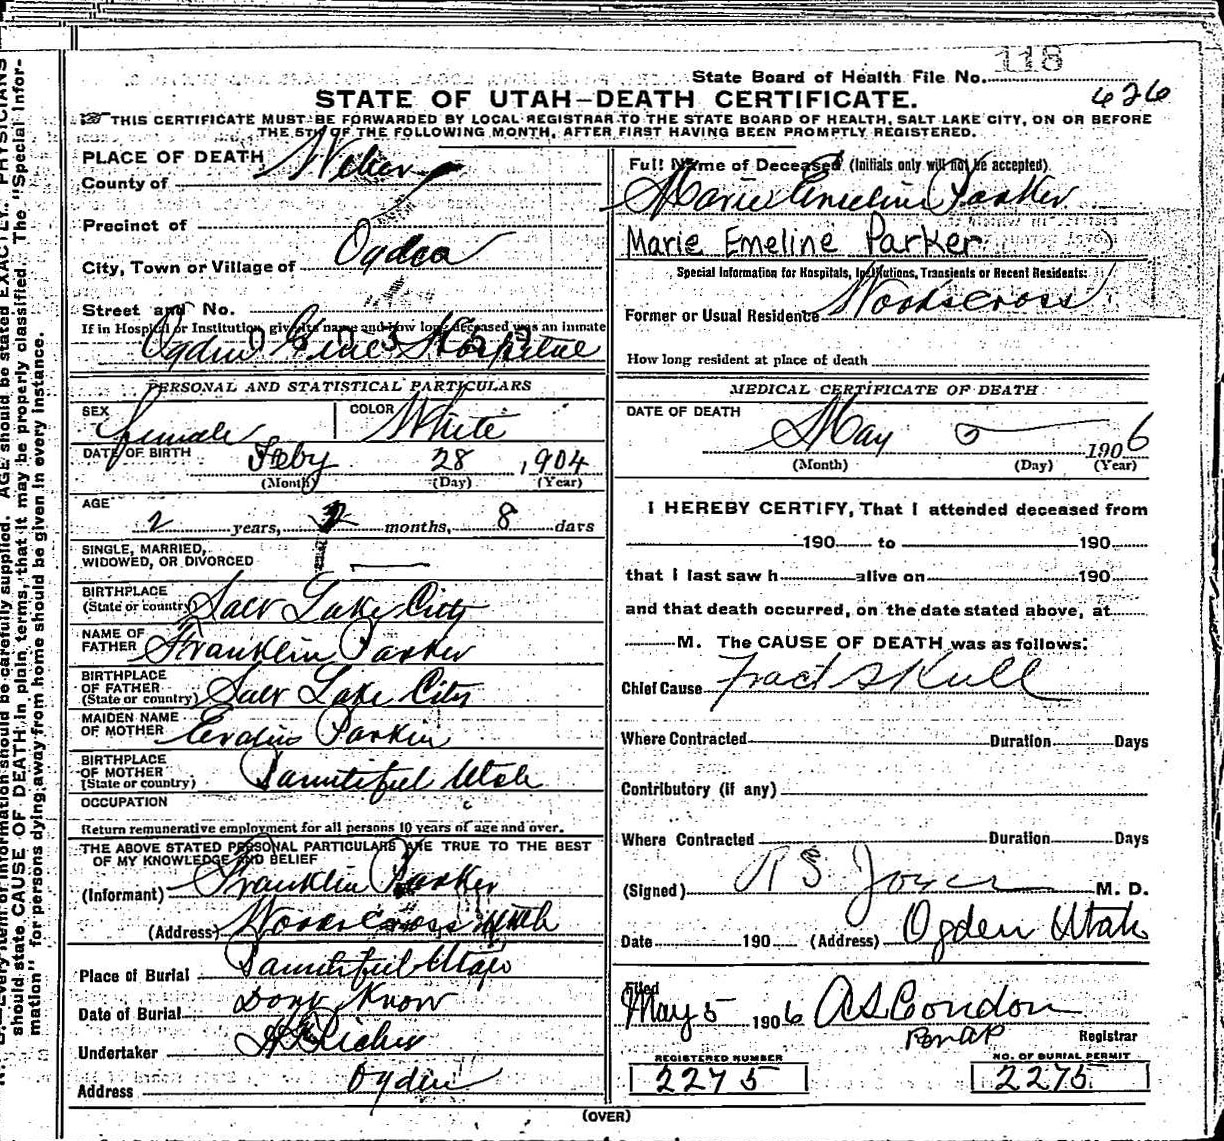 118
State Board of Health File No.
STATE OF UTAH—DEATH CERTIFICATE.
626
THIS CERTIFICATE MUST BE FORWARDED BY LOCAL REGISTRAR TO THE STATE BOARD OF HEALTH, SALT LAKE CITY, ON OR BEFORE
THE 5TH OF THE FOLLOWING MONTH, AFTER FIRST HAVING BEEN PROMPTLY REGISTERED.
PLACE OF DEATH
County of Weber
Precinct of
City, Town or Village of Ogden
Street and No.
If in Hospital or Institution, give its name and how long deceased was an inmate
Ogden Genl Hospital
PERSONAL AND STATISTICAL PARTICULARS
SEX Female COLOR White
DATE OF BIRTH Feby 28 , 1904
(Month) (Day) (Year)
AGE
2 years, 2 months, 8 days
SINGLE, MARRIED,
WIDOWED, OR DIVORCED
BIRTHPLACE
(State or country) Salt Lake City
NAME OF
FATHER Franklin Parker
BIRTHPLACE
OF FATHER
(State or country) Salt Lake City
MAIDEN NAME
OF MOTHER Parkin
BIRTHPLACE
OF MOTHER
(State or country) Bountiful Utah
OCCUPATION
Return remunerative employment for all persons 10 years of age and over.
THE ABOVE STATED PERSONAL PARTICULARS ARE TRUE TO THE BEST
OF MY KNOWLEDGE AND BELIEF
(Informant) Franklin Parker
(Address) Woodscross Utah
Place of Burial Bountiful Utah
Date of Burial Dont Know
Undertaker
Address Ogden
Full Name of Deceased (Initials only will not be accepted)
Marie Emeline Parker
Marie Emeline Parker
Special Information for Hospitals, Institutions, Transients or Recent Residents:
Former or Usual Residence Woodscross
How long resident at place of death
MEDICAL CERTIFICATE OF DEATH
DATE OF DEATH
May 5 1906
(Month) (Day) (Year)
I HEREBY CERTIFY, That I attended deceased from
190 to 190
that I last saw h alive on 190
and that death occurred, on the date stated above, at
M. The CAUSE OF DEATH was as follows:
Chief Cause Fract Skull
Where Contracted Duration Days
Contributory (if any)
Where Contracted Duration Days
(Signed) R S Joyce M. D.
Date 190 (Address) Ogden Utah
Filed
May 5 1906 A S Condon
Registrar
REGISTERED NUMBER
2275
NO. OF BURIAL PERMIT
2275
(OVER)
should state CAUSE OF DEATH in plain terms, that it may be properly classified. The "Special Infor-
mation" for persons dying away from home should be given in every instance.